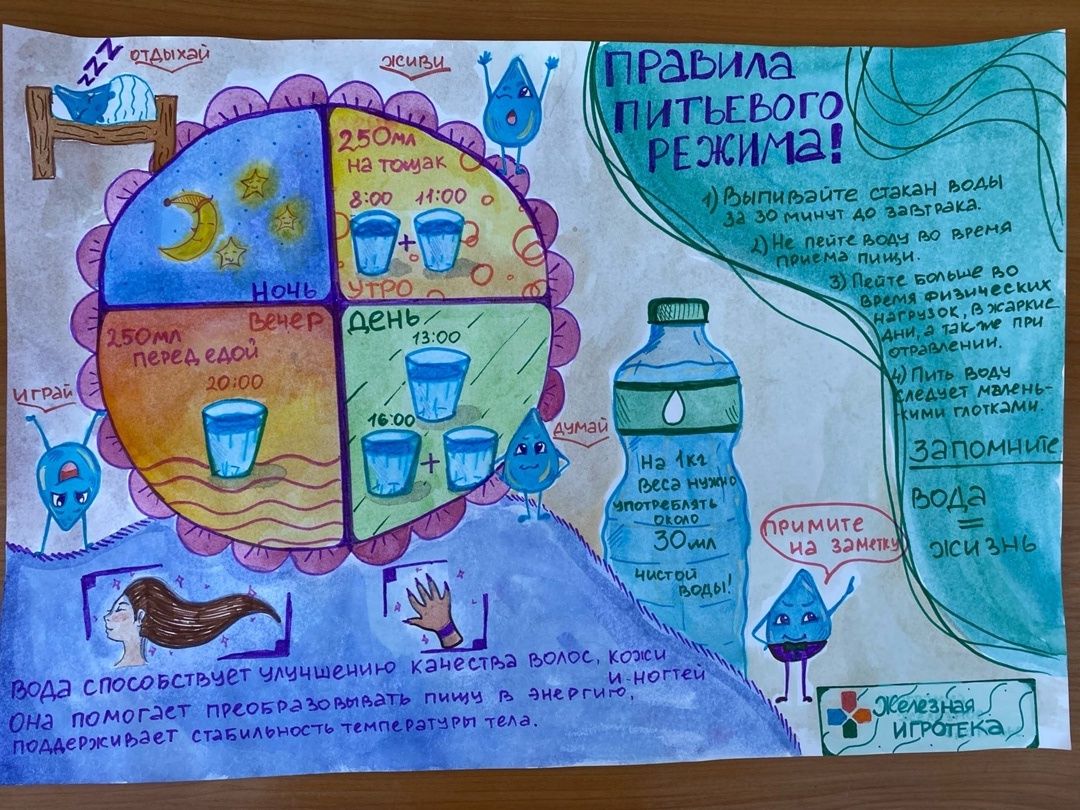 ZZZ
ОТДЫХАЙ
ЖИВИ
ПРАВИЛА
ПИТЬЕВОГО
РЕЖИМА!
1) Выпивайте стакан воды
за 30 минут до завтрака.
2) Не пейте воду во время
приема пищи.
3) Пейте больше во
время физических
нагрузок, в жаркие
дни, а также при
отравлении.
4) Пить воду
следует малень-
кими глотками.
Запомните
Вода
=
жизнь
250мл
на тощак
8:00 11:00
+
УТРО
НОЧЬ
Вечер
250мл
перед едой
20:00
ДЕНЬ
13:00
16:00
+
ИГРАЙ
ДУМАЙ
На 1кг
веса нужно
употреблять
около
30мл
чистой
воды!
Примите
на заметку
Вода способствует улучшению качества волос, кожи
и ногтей
Она помогает преобразовывать пищу в энергию,
поддерживает стабильность температуры тела.
Железная
игротека